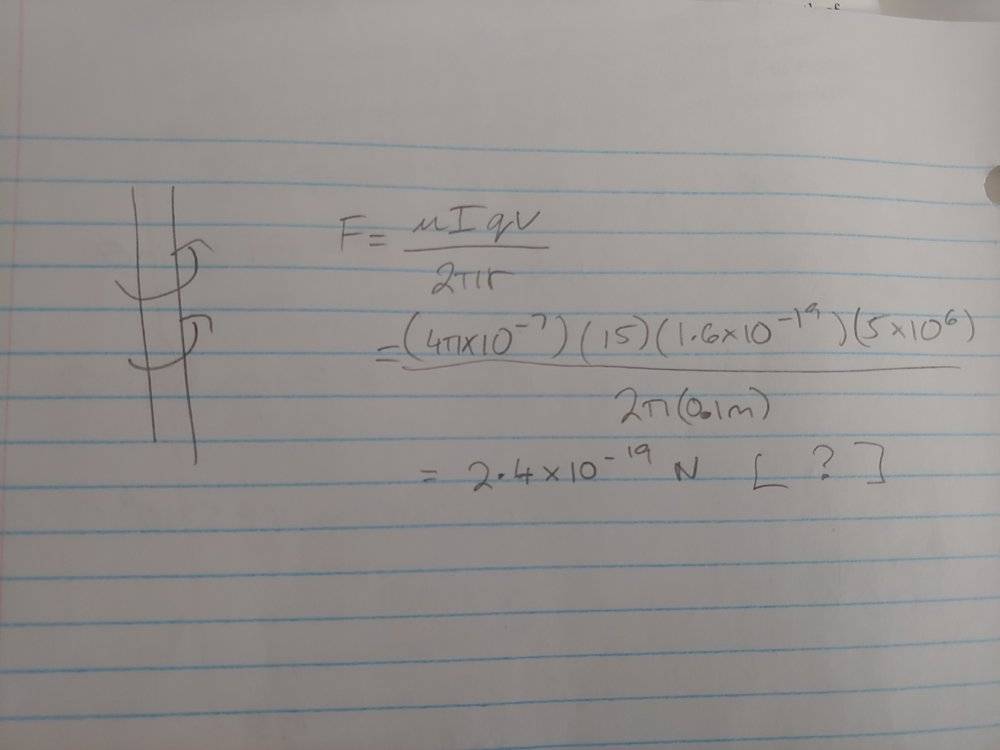 F = μIqv / 2πr
= (4π×10⁻⁷)(15)(1.6×10⁻¹⁹)(5×10⁶) / 2π(0.1m)
= 2.4×10⁻¹⁹ N [ ? ]